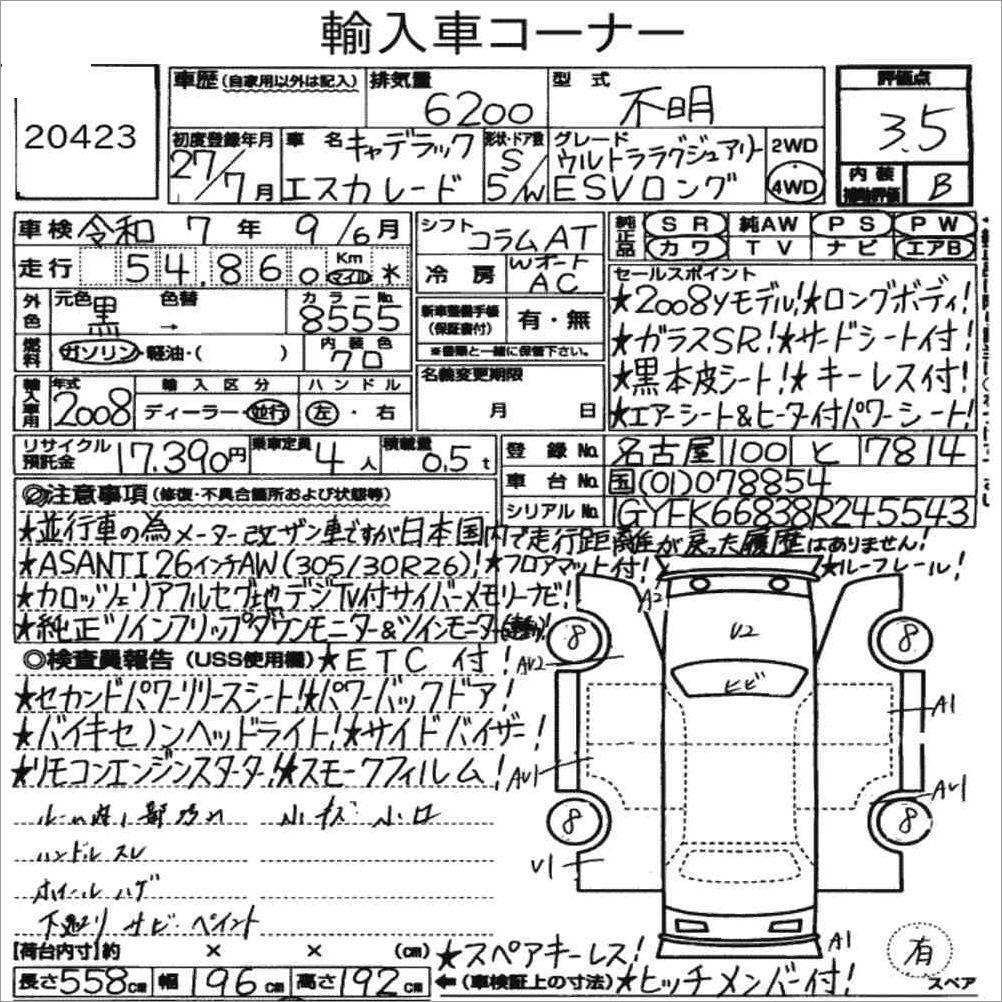 輸入車コーナー
20423
車歴(自家用以外は記入) 排気量 6200 型式 不明 評価点 3.5
初度登録年月 27/7月 車名 キャデラック エスカレード 形状・ドア数 S 5/W グレード ウルトララグジュアリー ESVロング 2WD 4WD 内装補助評価 B
車検 令和 7年 9/6月 シフト コラムAT 純正品 SR 純AW PS PW
カワ TV ナビ エアB
走行 54,860 Km マイル 冷房 Wオート AC
セールスポイント
★2008yモデル!★ロングボディ!
外色 元色 黒 色替 → カラーNo. 8555 新車整備手帳(保証書付) 有・無
★ガラスSR!★サードシート付!
燃料 ガソリン・軽油・( ) 内装色 クロ ※書類と一緒に保管下さい。
★黒本皮シート!★キーレス付!
輸入車用 年式 2008 輸入区分 ディーラー・並行 ハンドル 左・右 名義変更期限 月 日
★エアーシート&ヒーター付パワーシート!
リサイクル預託金 17,390円 乗車定員 4人 積載量 0.5t 登録No. 名古屋 100 と 7814
車台No. 国(01)078854
シリアルNo. 1GYFK66838R245543
②注意事項(修復・不具合箇所および状態等)
★並行車の為メーター改ザン車ですが日本国内で走行距離が戻った履歴はありません!
★ASANTI26インチAW(305/30R26)!★フロアマット付! ★ルーフレール!
★カロッツェリアフルセグ地デジTV付サイバーメモリーナビ!
★純正ツインフリップダウンモニター&ツインモニター
◎検査員報告(USS使用欄)★ETC付!
★セカンドパワーリリースシート!★パワーバックドア!
★バイキセノンヘッドライト!★サイドバイザー!
★リモコンエンジンスターター!★スモークフィルム!
小キズ・小凹
ハンドル スレ
ホイール ハゲ
下廻り サビ・ペイント
A2
U2
8
8
AU2
ヒビ
A1
AU1
AU1
8
8
U1
A1
有
スペア
【荷台内寸】約 × × (cm) ★スペアキーレス!
長さ 558cm 幅 196cm 高さ 192cm ←(車検証上の寸法)★ヒッチメンバー付!